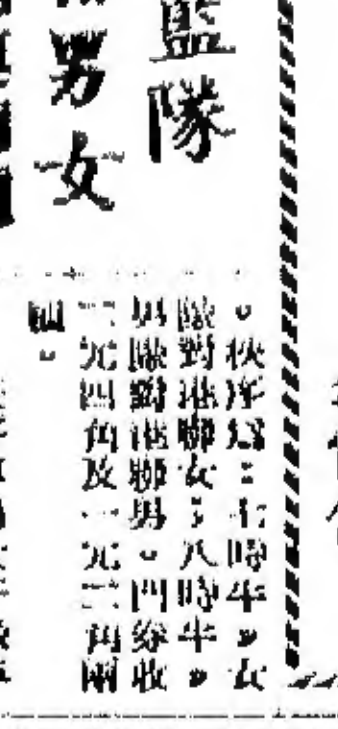 籃隊
男女
。秩序爲：七時半，女
隊對港聯女；八時半，
男隊對港聯男。門券收
二元四角及一元二角兩
種。